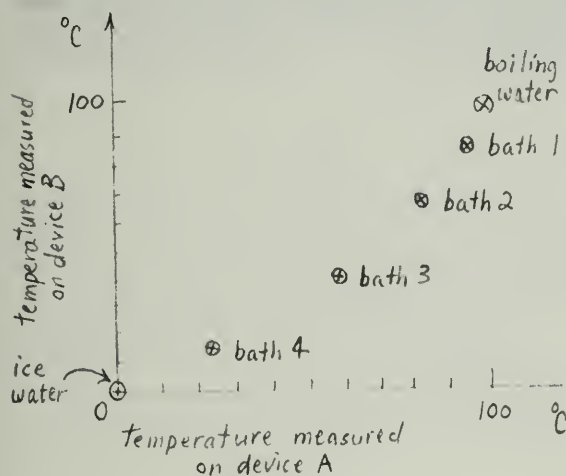 °C
100
temperature measured
on device B
boiling
water
bath 1
bath 2
bath 3
bath 4
ice
water
0
100
°C
temperature measured
on device A